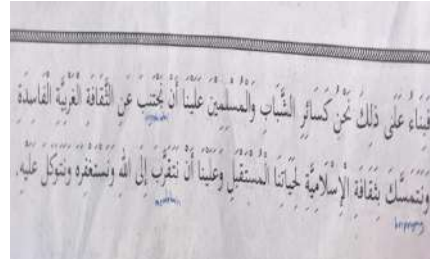 فَبِنَاءً عَلَى ذٰلِكَ نَحْنُ كَسَائِرِ الشَّبَابِ وَالْمُسْلِمِيْنَ عَلَيْنَا أَنْ نَجْتَنِبَ عَنِ الثَّقَافَةِ الْغَرْبِيَّةِ الْفَاسِدَةِ
وَنَتَمَسَّكَ بِثَقَافَةِ الْإِسْلَامِيَّةِ لِحَيَاتِنَا الْمُسْتَقْبَلِ وَعَلَيْنَا أَنْ نَتَقَرَّبَ إِلَى اللهِ وَنَسْتَغْفِرَهُ وَنَتَوَكَّلَ عَلَيْهِ.